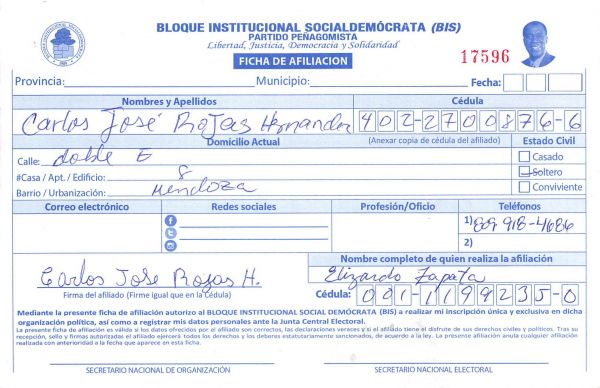 BLOQUE INSTITUCIONAL SOCIALDEMÓCRATA (BIS)
PARTIDO PEÑAGOMISTA
Libertad, Justicia, Democracia y Solidaridad
FICHA DE AFILIACION
17596
Provincia: Municipio: Fecha:
Nombres y Apellidos Cédula
Carlos José Rojas Hernandez 402-2700876-6
Domicilio Actual (Anexar copia de cédula del afiliado) Estado Civil
Calle: doble E Casado
#Casa / Apt. / Edificio: 8 Soltero
Barrio / Urbanización: Mendoza Conviviente
Correo electrónico Redes sociales Profesión/Oficio Teléfonos
1) 809 918-4686
2)
Nombre completo de quien realiza la afiliación
Carlos Jose Rojas H. Elizardo Zapata
Firma del afiliado (Firme igual que en la Cédula) Cédula: 001-1199235-0
Mediante la presente ficha de afiliación autorizo al BLOQUE INSTITUCIONAL SOCIAL DEMÓCRATA (BIS) a realizar mi inscripción única y exclusiva en dicha
organización política, así como a registrar mis datos personales ante la Junta Central Electoral.
La presente ficha de afiliación es válida si los datos ofrecidos por el afiliado son correctos, las declaraciones verces y si el afiliado tiene el disfrute de sus derechos civiles y políticos. Tras su
recepción, sello y firmas autorizadas el afiliado ejercerá todos los derechos y los deberes estatutariamente sancionados, de acuerdo a la ley. La presente afiliación anula cualquier afiliación
realizada con anterioridad a la fecha que aparece en esta ficha.
SECRETARIO NACIONAL DE ORGANIZACIÓN SECRETARIO NACIONAL ELECTORAL